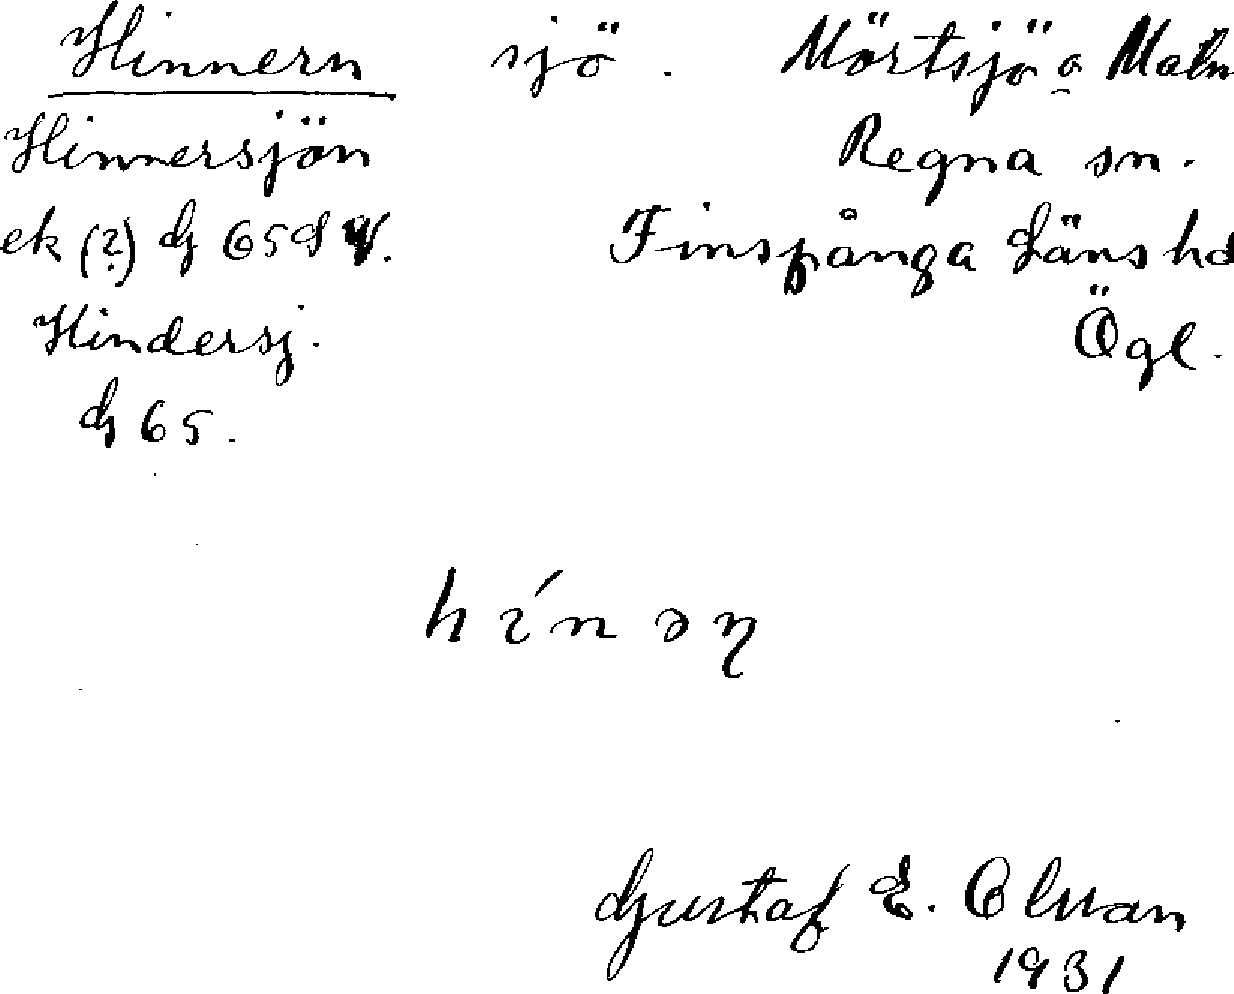 Hinnern sjö. Mörtsjö o Malm
Hinnersjön Regna sn.
ek (?) G 65 Finspånga läns hd
Hindersj. Ögl.
G 65.
hínəŋ
Gustaf E.
1931